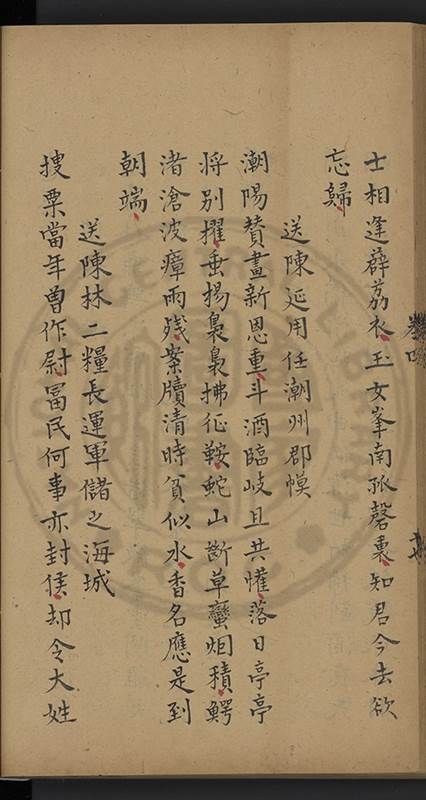 士相逢薜荔衣玉女峯南孤磬裏知君今去欲
忘歸
送陳延用任潮州郡幙
潮陽贊畫新恩重斗酒臨岐且共懽落日亭亭
将别擢垂揚裊裊拂征鞍蛇山斷草蠻烟積鰐
渚滄波瘴雨殘案牘清時貧似水香名應是到
朝端
送陳林二糧長運軍儲之海城
捜粟當年曽作尉冨民何事亦封侯却令大姓